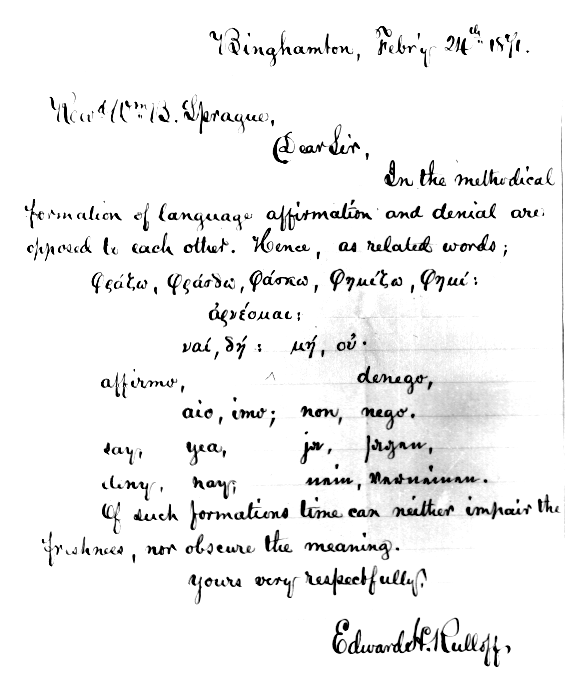 Binghamton, Feb'y 24th 1871.
Revd Wm B. Sprague,
Dear Sir,
In the methodical
formation of language affirmation and denial are
opposed to each other. Hence, as related words;
φράζω, φράσδω, φάσκω, φημίζω, φημί:
ἀρνέομαι:
ναί, δή: μή, οὐ.
affirmo, denego,
aio, imo; non, nego.
say, yea, ja, sagen,
deny, nay, nein, verneinen.
Of such formations time can neither impair the
freshness, nor obscure the meaning.
Yours very respectfully,
Edward H. Rulloff,